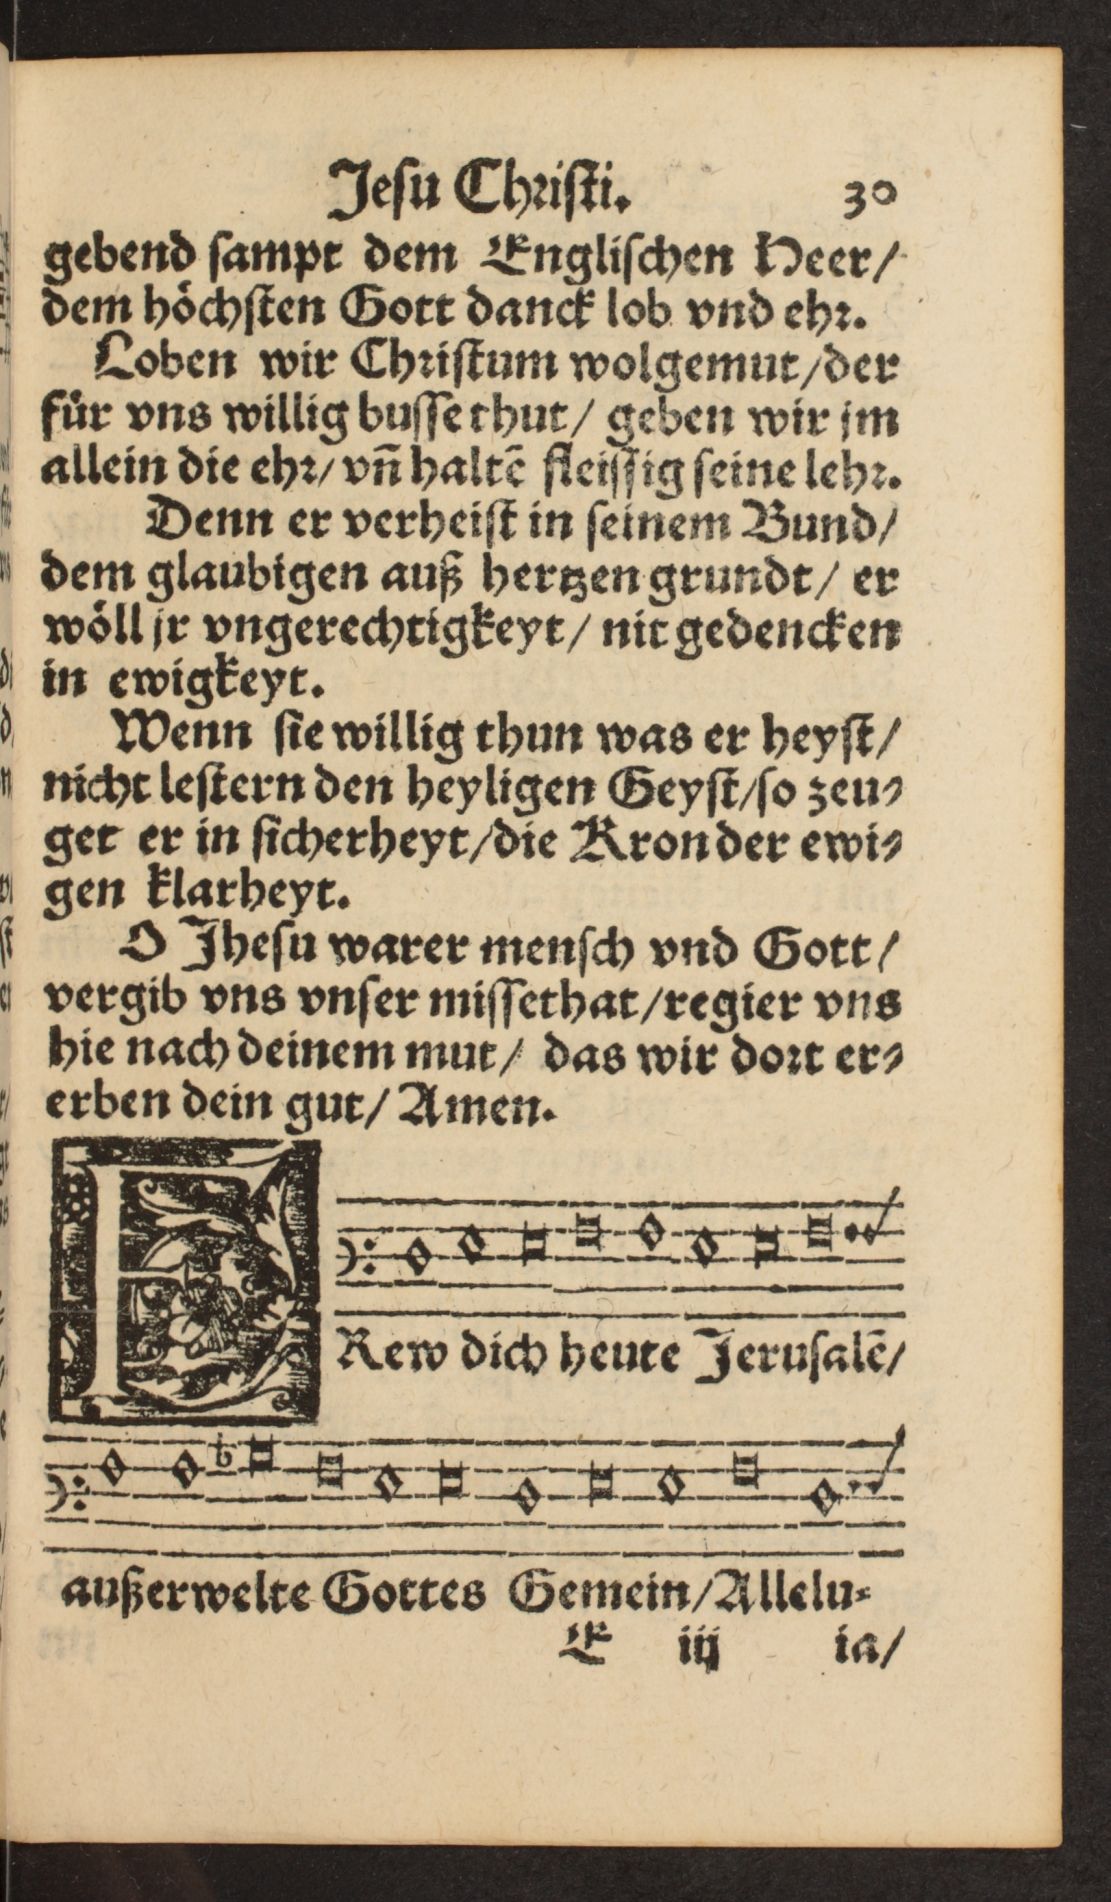 Jesu Christi. 30
gebend sampt dem Englischen Heer/
dem höchsten Gott danck lob vnd ehr.
Loben wir Christum wolgemut/der
für vns willig busse thut/ geben wir jm
allein die ehr/ vñ haltē fleissig seine lehr.
Denn er verheist in seinem Bund/
dem glaubigen auß hertzen grundt/ er
wöll jr vngerechtigkeyt/ nit gedencken
in ewigkeyt.
Wenn sie willig thun was er heyst/
nicht lestern den heyligen Geyst/so zeu⸗
get er in sicherheyt/die Kron der ewi⸗
gen klarheyt.
O Jhesu warer mensch vnd Gott/
vergib vns vnser missethat/regier vns
hie nach deinem mut/ das wir dort er⸗
erben dein gut/ Amen.
FRew dich heute Jerusalē/
außerwelte Gottes Gemein/Allelu⸗
E iij ia/